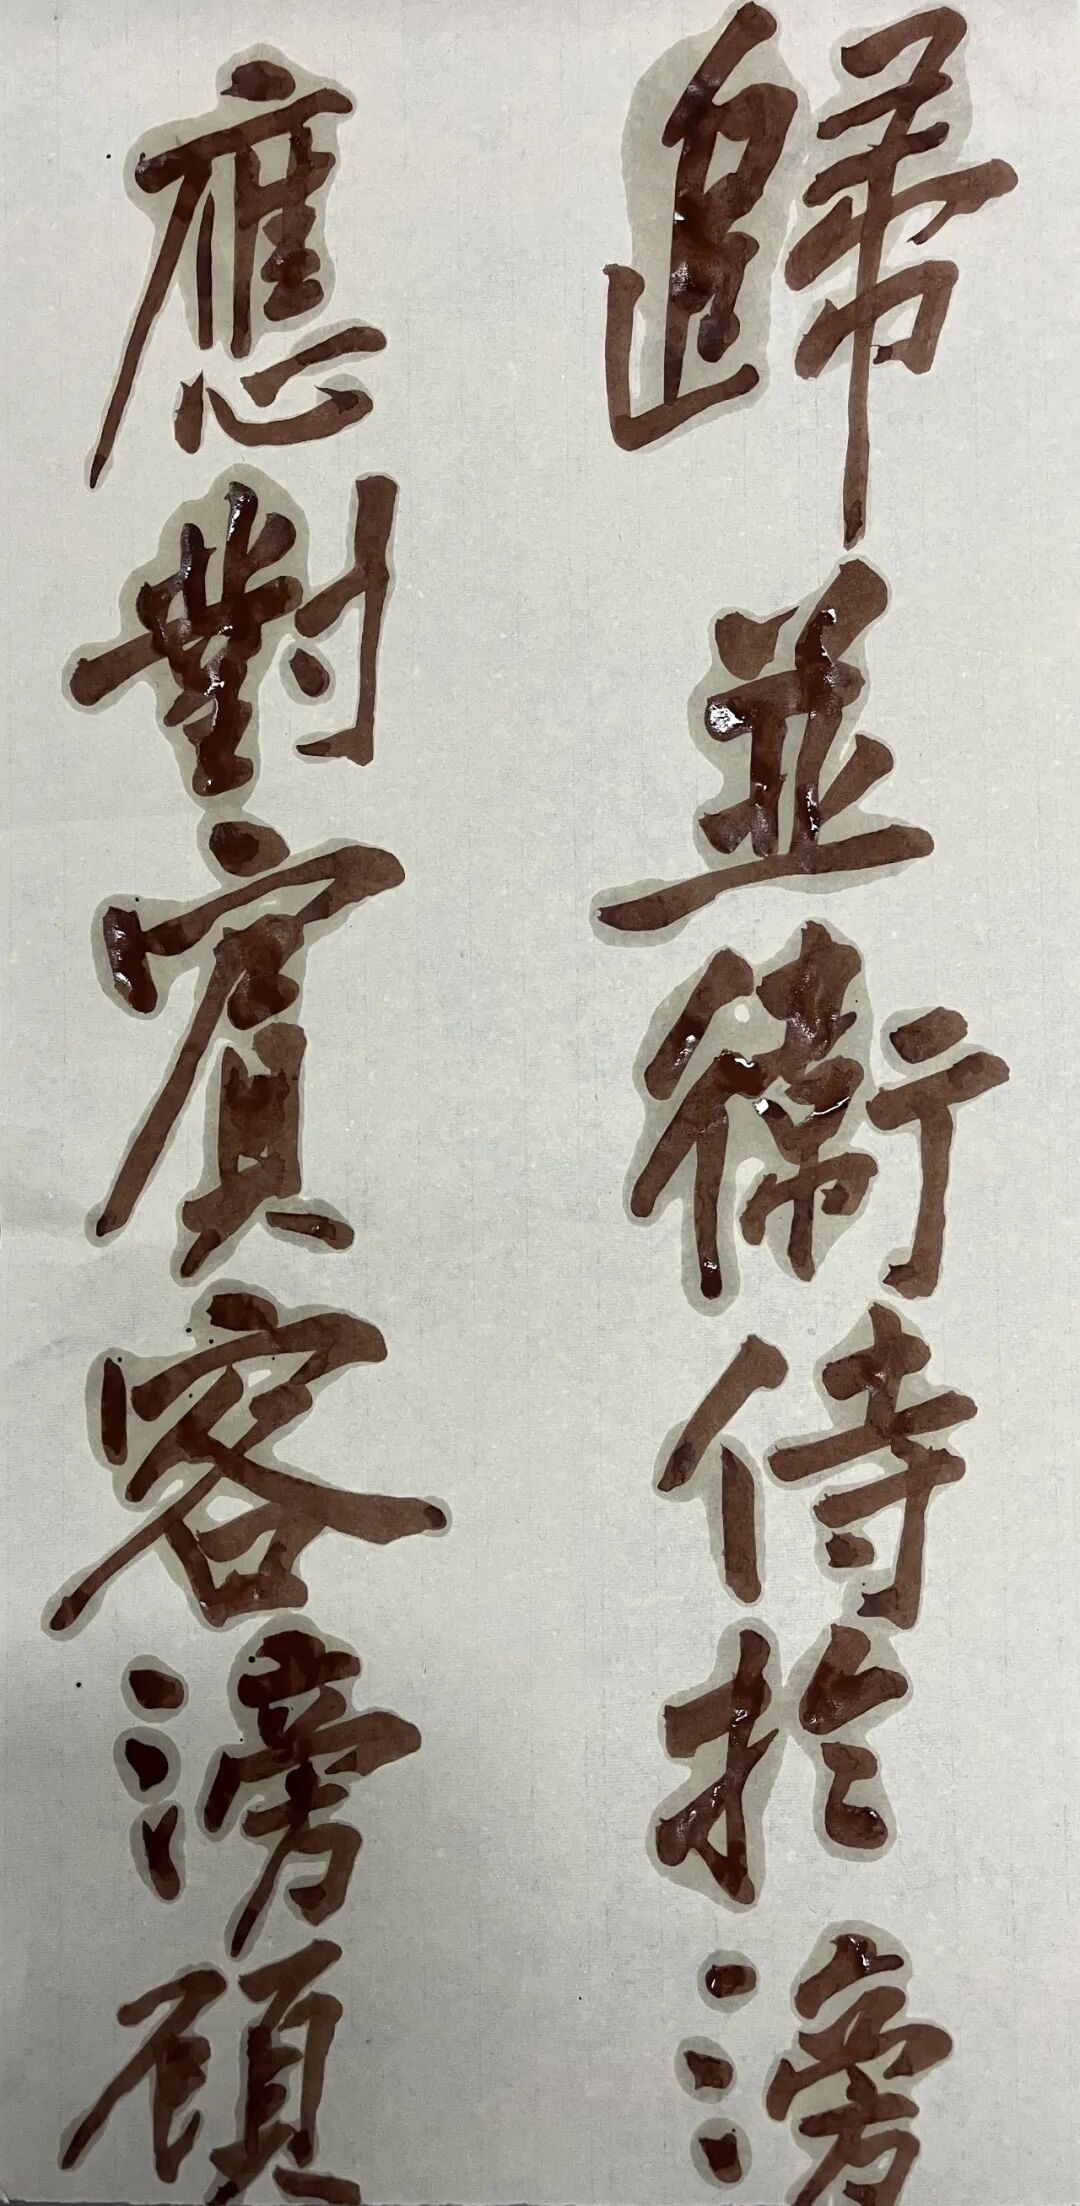 歸並衛侍於滂
應對賓客滂顧